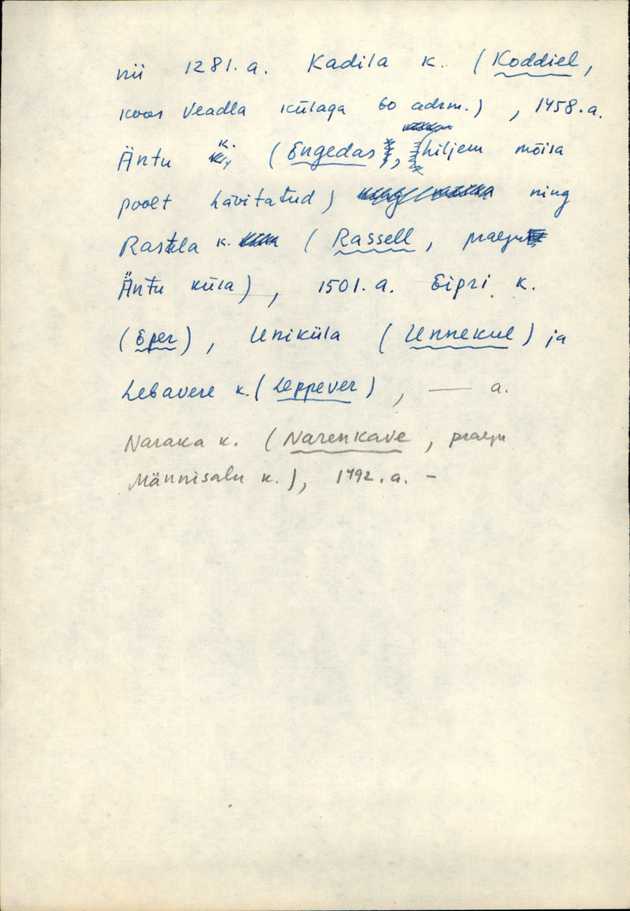 nii 1281. a. Kadila k. (Koddiel,
koos Veadla külaga 60 adrm.) , 1458. a.
Äntu k. (Engedas, hiljem mõisa
poolt hävitatud) ning
Rastla k. (Rassell, praegu
Äntu küla) , 1501. a. Eipri k.
(Eper) , Uniküla (Unnekul) ja
Lebavere k. (Leppever) , — a.
Naraka k. (Narenkave, praegu
Männisalu k.), 1492. a. –